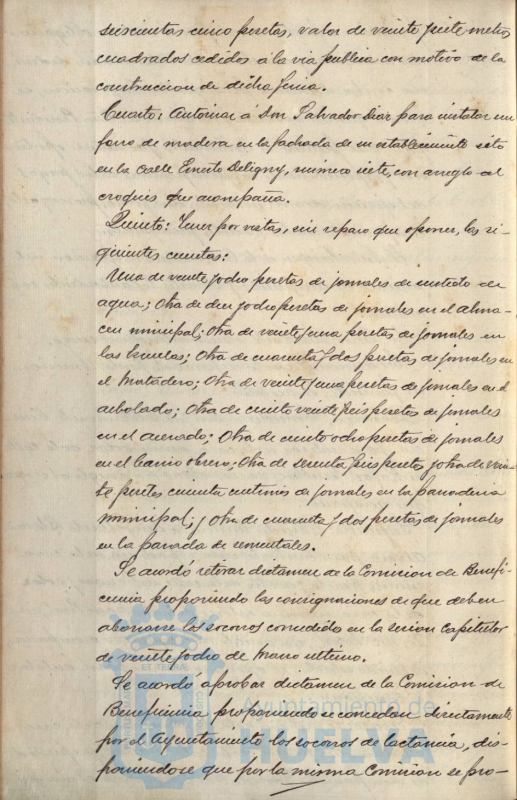 seiscientas cinco pesetas, valor de veinte y siete metros
cuadrados cedidos á la via publica con motivo de la
construccion de dicha finca.
Cuarto: Autorizar á Don Salvador Diaz para instalar un
forro de madera en la fachada de su establecimiento sito
en la calle Ernesto Deligny, número siete, con arreglo al
croquis que acompaña.
Quinto: Tener por vistas, sin reparo que oponer, las si-
guientes cuentas:
Una de veinte y ocho pesetas de jornales de surtido de
agua; Otra de diez y ocho pesetas de jornales en el alma-
cen municipal; Otra de veinte y una pesetas de jornales en
las Escuelas; Otra de cuarenta y dos pesetas de jornales en
el Matadero; Otra de veinte y una pesetas de jornales en el
arbolado; Otra de ciento veinte y seis pesetas de jornales
en el acerado; Otra de ciento ocho pesetas de jornales
en el barrio obrero; Otra de sesenta y seis pesetas y otra de vein-
te pesetas cincuenta centimos de jornales en la panaderia
municipal; y otra de cuarenta y dos pesetas de jornales
en la parada de sementales.
Se acordó retirar dictamen de la Comision de Benefi-
cencia proponiendo las consignaciones de que deben
abonarse los socorros concedidos en la sesion Capitular
de veinte y ocho de Marzo ultimo.
Se acordó aprobar dictamen de la Comision de
Beneficencia proponiendo se concedan directamente
por el Ayuntamiento los socorros de lactancia, dis-
poniendose que por la misma Comision se pro-
Ayuntamiento de
HUELVA